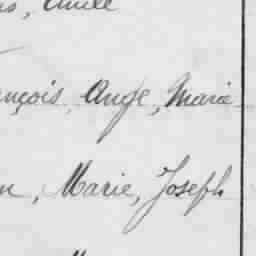 Emile
ançois, Ange, Marie
n, Marie, Joseph